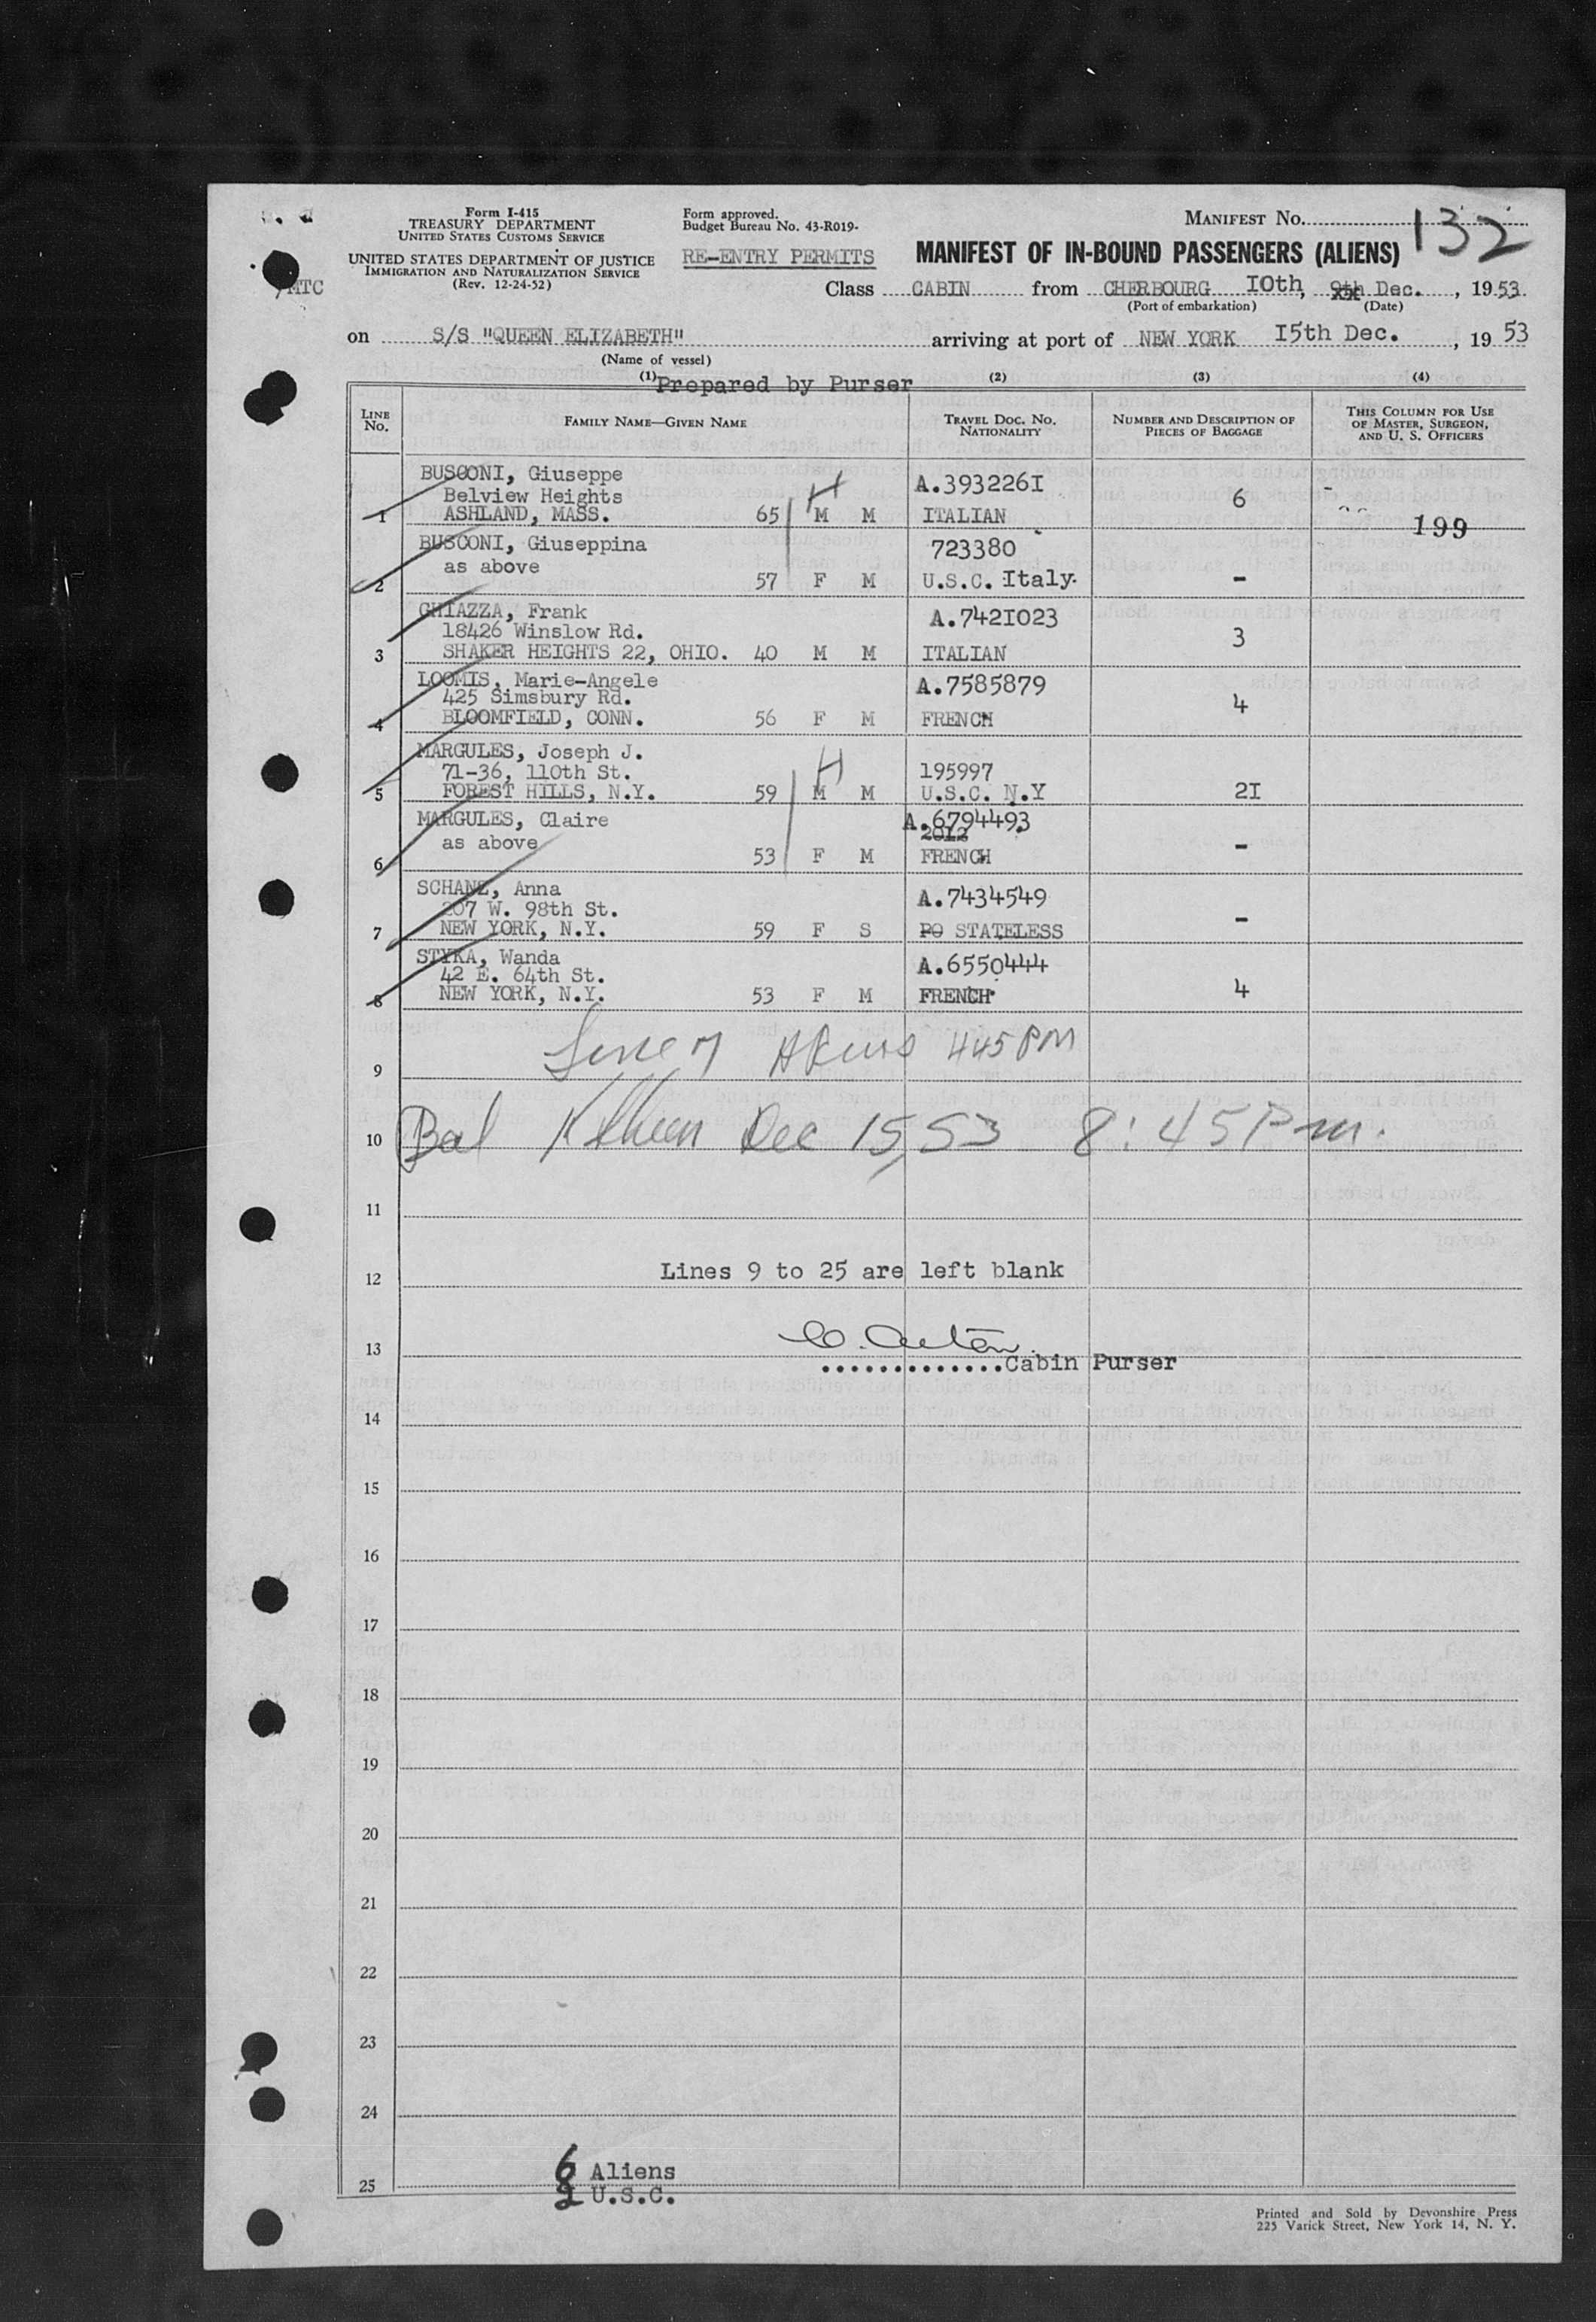 Form I-415
TREASURY DEPARTMENT
UNITED STATES CUSTOMS SERVICE
UNITED STATES DEPARTMENT OF JUSTICE
IMMIGRATION AND NATURALIZATION SERVICE
(Rev. 12-24-52)
Form approved.
Budget Bureau No. 43-R019-
RE-ENTRY PERMITS
MANIFEST No. 132
MANIFEST OF IN-BOUND PASSENGERS (ALIENS)
Class CABIN from CHERBOURG 10th, 9th Dec., 1953
(Port of embarkation) (Date)
on S/S "QUEEN ELIZABETH" arriving at port of NEW YORK 15th Dec., 1953
(Name of vessel)
(1) Prepared by Purser (2) (3) (4)
LINE No. FAMILY NAME—GIVEN NAME TRAVEL DOC. NO. NATIONALITY NUMBER AND DESCRIPTION OF PIECES OF BAGGAGE THIS COLUMN FOR USE OF MASTER, SURGEON, AND U. S. OFFICERS
BUSCONI, Giuseppe A.3932261
Belview Heights H 6
1 ASHLAND, MASS. 65 M M ITALIAN 199
BUSCONI, Giuseppina 723380
as above
2 57 F M U.S.C. Italy. -
GHIAZZA, Frank A.7421023
18426 Winslow Rd. 3
3 SHAKER HEIGHTS 22, OHIO. 40 M M ITALIAN
LOOMIS, Marie-Angele A.7585879
425 Simsbury Rd. 4
4 BLOOMFIELD, CONN. 56 F M FRENCH
MARGULES, Joseph J.
71-36, 110th St. H 195997
5 FOREST HILLS, N.Y. 59 M M U.S.C. N.Y 21
MARGULES, Claire A.6794493
as above 2012 -
6 53 F M FRENCH
SCHANZ, Anna A.7434549
207 W. 98th St. -
7 NEW YORK, N.Y. 59 F S PO STATELESS
STYKA, Wanda A.6550444
42 E. 64th St. 4
8 NEW YORK, N.Y. 53 F M FRENCH
Line 7 445 PM
9
10 Bal Dec 15, 53 8:45 P.m.
11
12 Lines 9 to 25 are left blank
13
.............Cabin Purser
14
15
16
17
18
19
20
21
22
23
24
6 Aliens
25
2 U.S.C.
Printed and Sold by Devonshire Press
225 Varick Street, New York 14, N. Y.